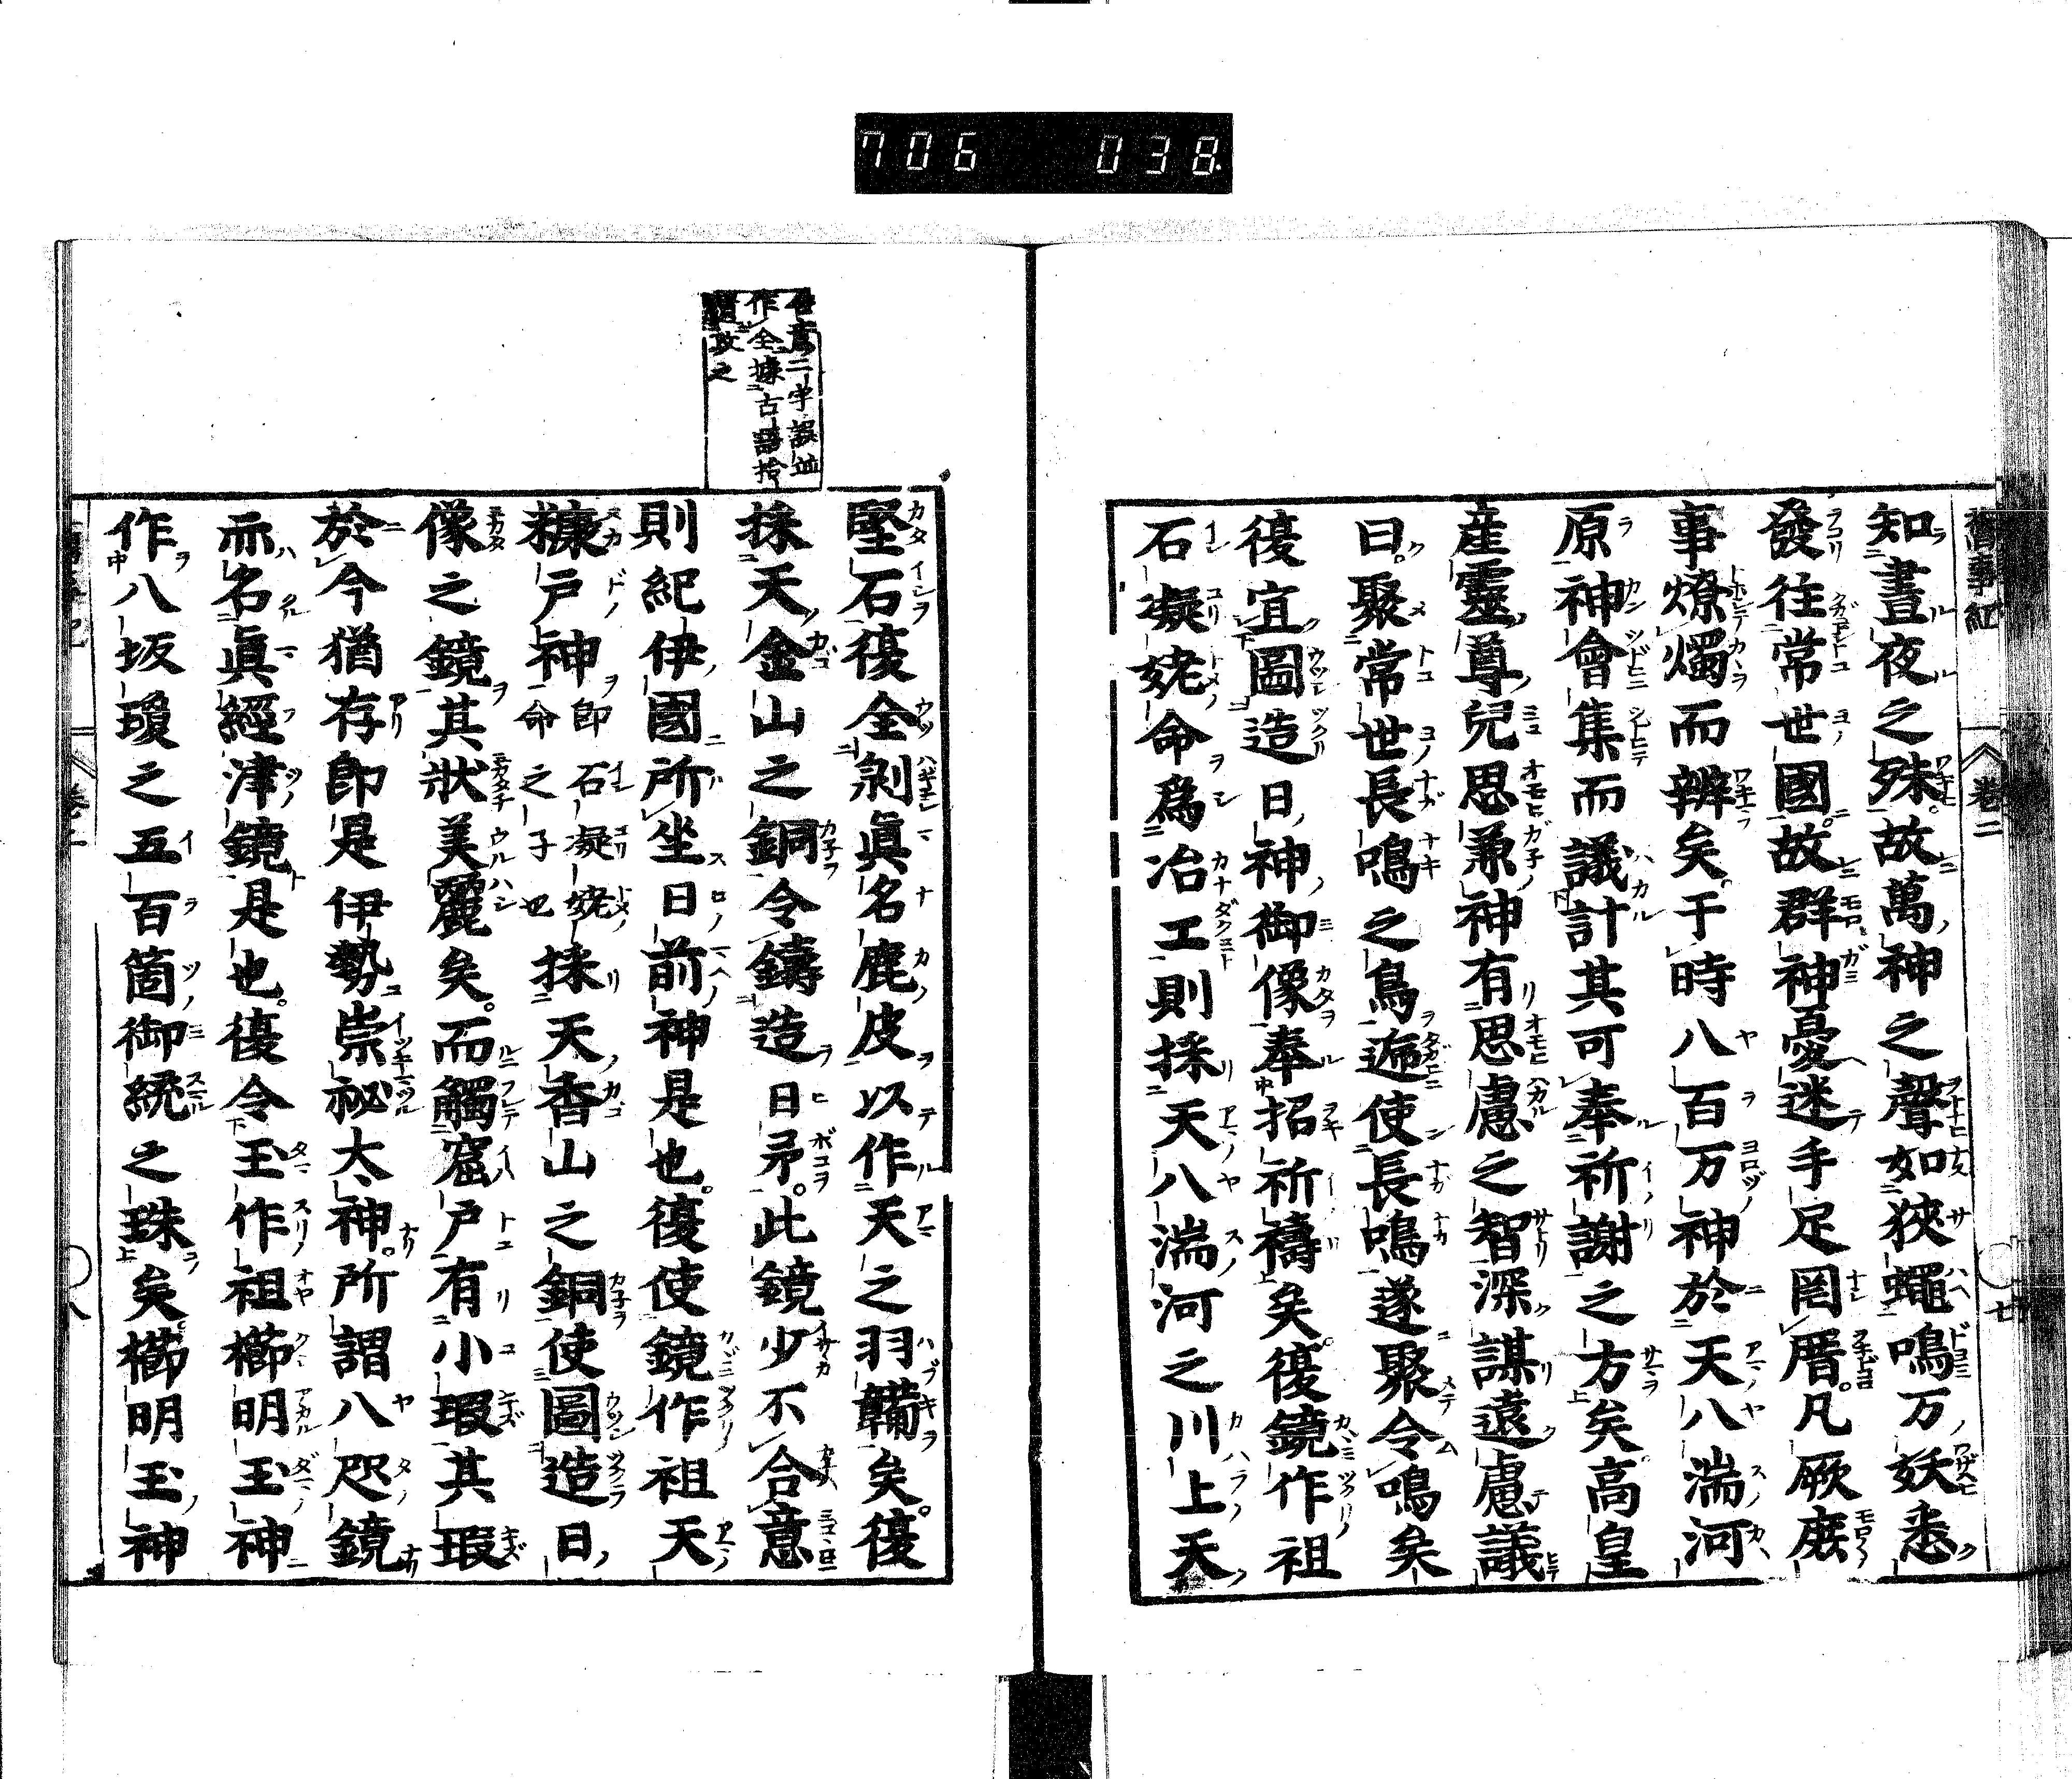 706 038
舊事紀 卷二
知晝夜之殊故萬神之聲如狹蠅鳴万妖悉
發往常世國故群神憂迷手足罔厝凡厥庶
事燎燭而辨矣于時八百万神於天八湍河
原神會集而議計其可奉祈謝之方矣高皇
産靈尊兒思兼神有思慮之智深謀遠慮議
曰聚常世長鳴之鳥遞使長鳴遂聚令鳴矣
復宜圖造日神御像奉招祈禱矣復鏡作祖
石凝姥命爲冶工則採天八湍河之川上天
堅石復全剝眞名鹿皮以作天之羽鞴矣復
採天金山之銅令鑄造日矛此鏡少不合意
則紀伊國所坐日前神是也復使鏡作祖天
糠戸神即石凝姥命之子也採天香山之銅使圖造日
像之鏡其狀美麗矣而觸窟戸有小瑕其瑕
於今猶存即是伊勢崇祕大神所謂八咫鏡
亦名眞經津鏡是也復令玉作祖櫛明玉神
作八坂瓊之五百箇御統之珠矣櫛明玉神
二字誤並
作全據古語拾
遺改之